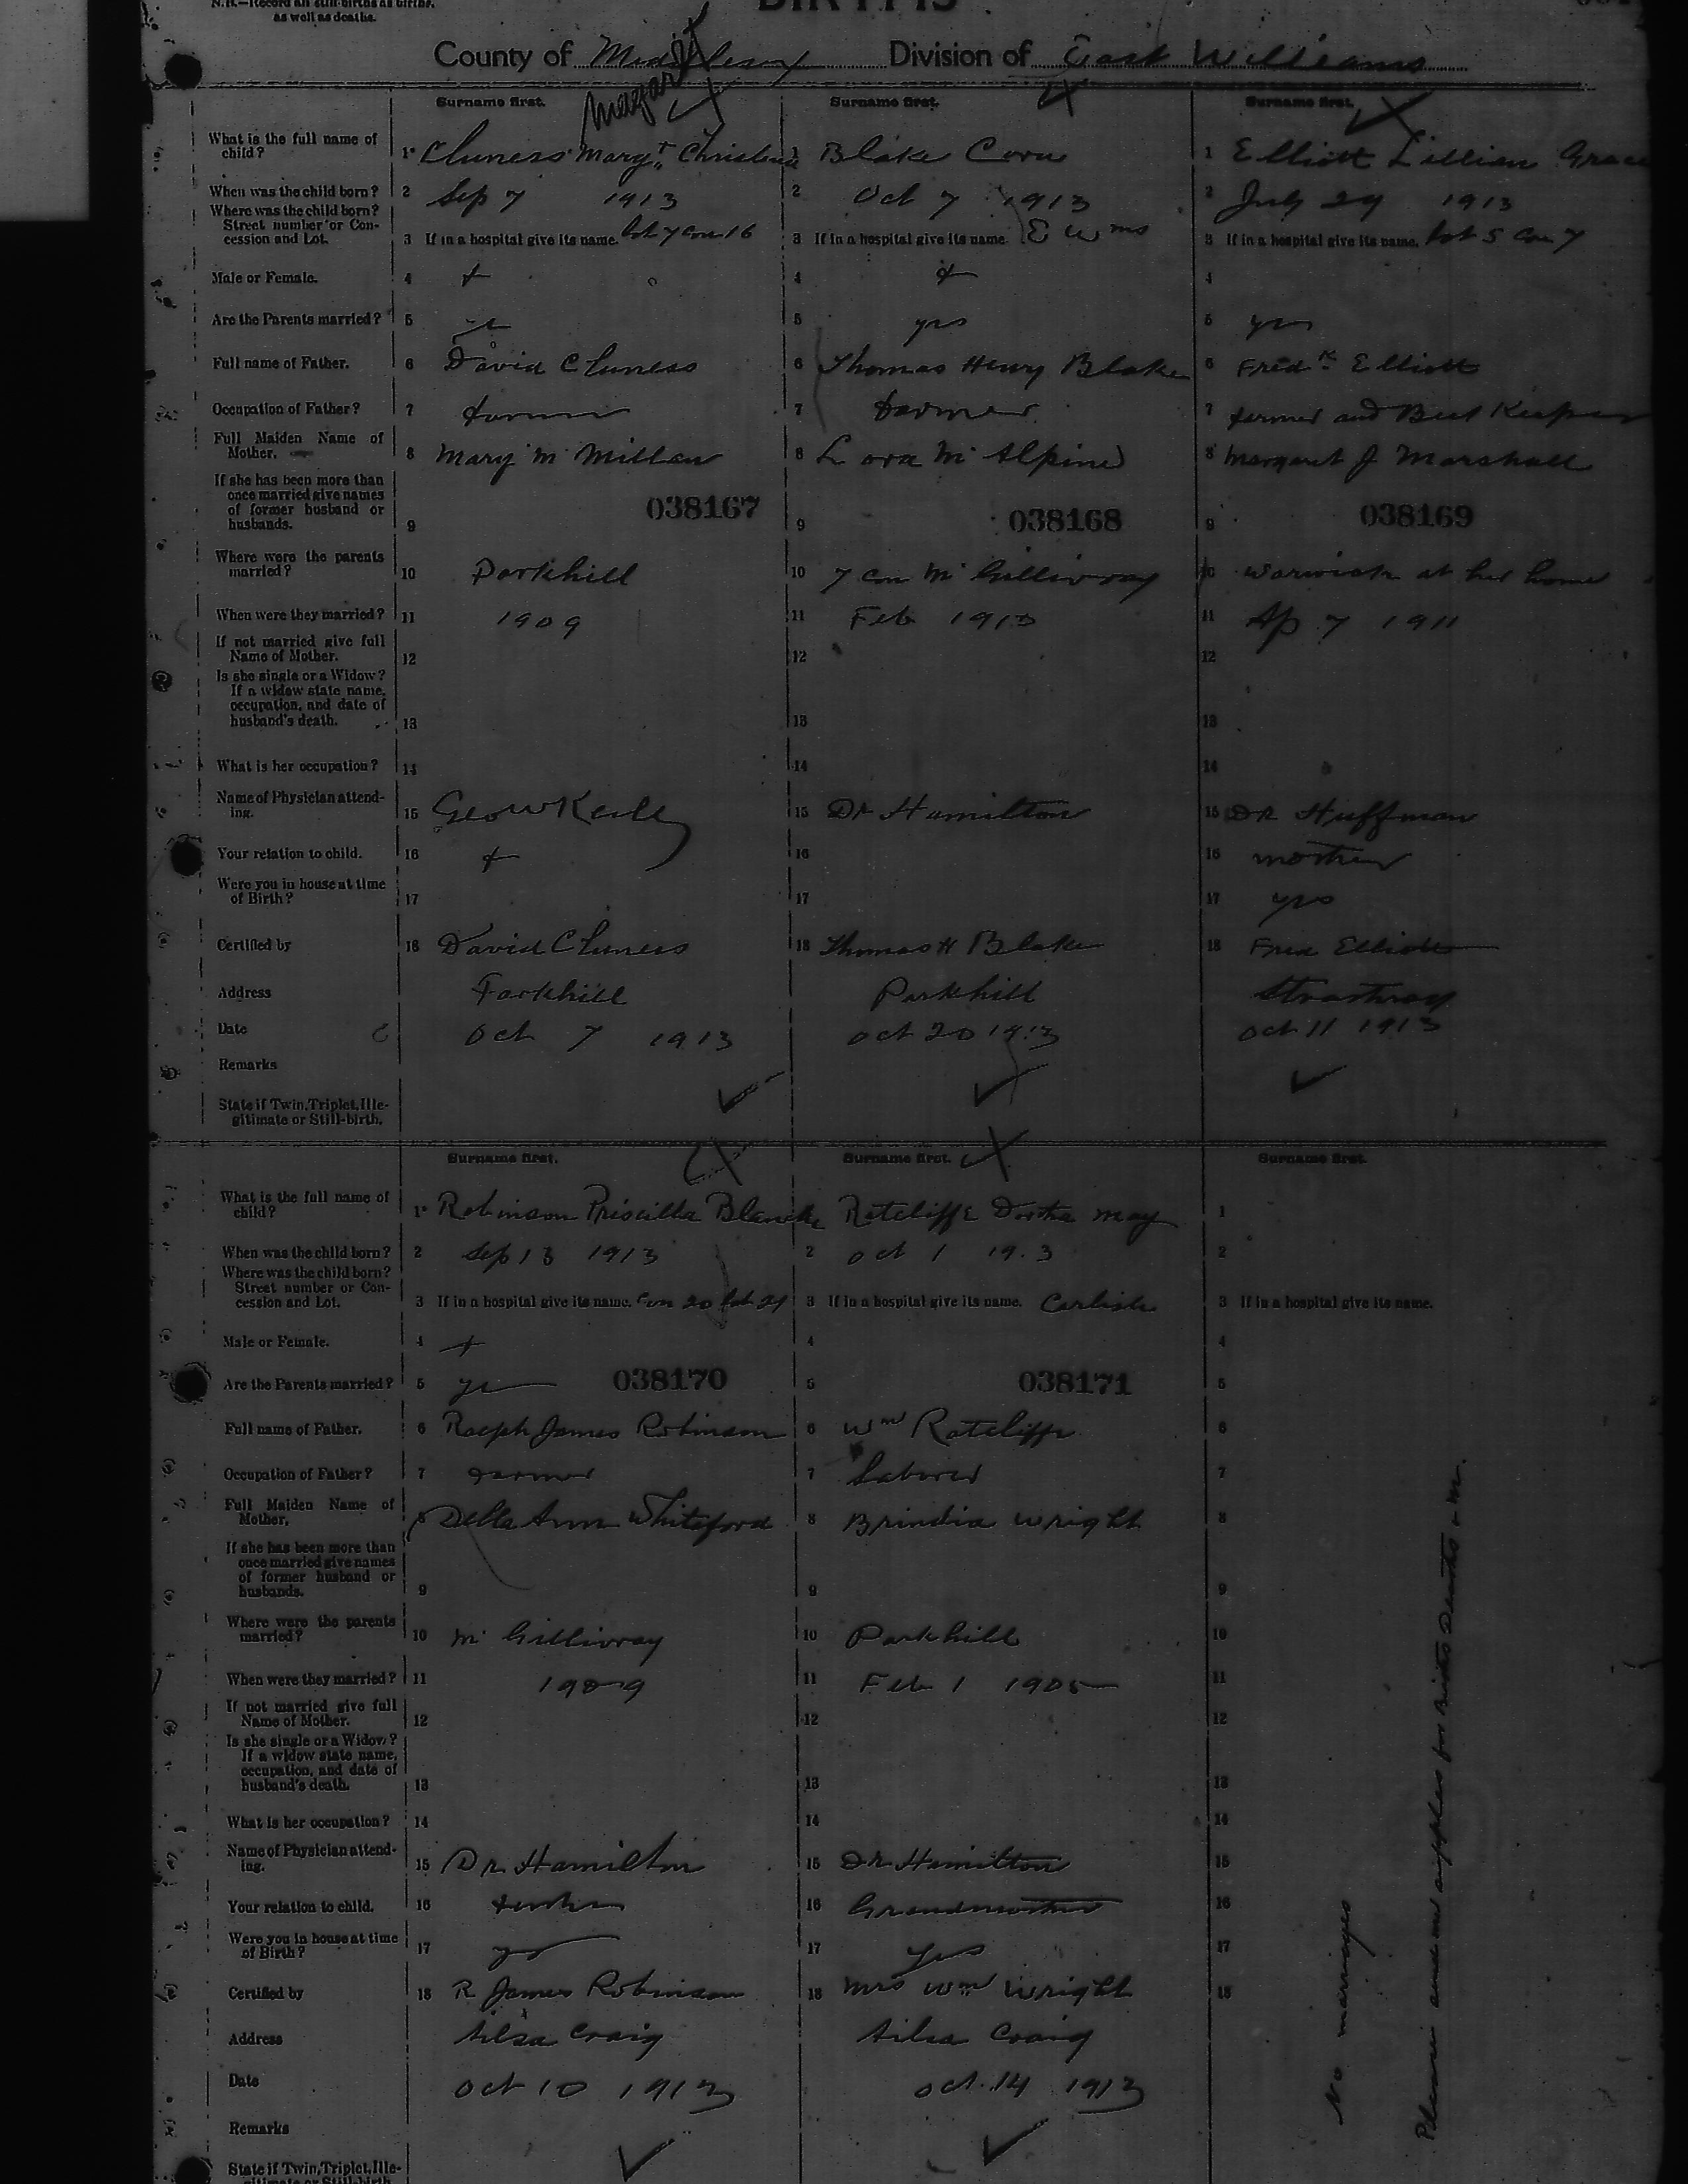 N.B.—Record all still-births as births,
as well as deaths.
BIRTHS
County of Middlesex Division of East Williams
Surname first. Surname first. Surname first.
Margaret
What is the full name of child? 1 Cluness Margt Christena 1 Blake Cora 1 Elliott Lillian Grace
When was the child born? 2 Sep 7 1913 2 Oct 7 1913 2 July 29 1913
Where was the child born? Street number or Concession and Lot. 3 If in a hospital give its name. lot 7 con 16 3 If in a hospital give its name. E Wms 3 If in a hospital give its name. lot 5 con 7
Male or Female. 4 f 4 f 4
Are the Parents married? 5 yes 5 yes 5 yes
Full name of Father. 6 David Cluness 6 Thomas Henry Blake 6 Fredk Elliott
Occupation of Father? 7 farmer 7 Farmer 7 farmer and Beet Keeper
Full Maiden Name of Mother. 8 Mary Mc Millan 8 Lora Mc Alpine 8 Margaret J Marshall
If she has been more than once married give names of former husband or husbands. 9 038167 9 038168 9 038169
Where were the parents married? 10 Parkhill 10 7 con Mc Gillivray 10 Warwick at her home
When were they married? 11 1909 11 Feb 1913 11 Ap 7 1911
If not married give full Name of Mother. 12 12 12
Is she single or a Widow? If a widow state name, occupation, and date of husband's death. 13 13 13
What is her occupation? 14 14 14
Name of Physician attending. 15 Geo W 15 Dr Hamilton 15 Dr Huffman
Your relation to child. 16 f 16 16 mother
Were you in house at time of Birth? 17 17 17 yes
Certified by 18 David Cluness 18 Thomas H Blake 18 Fred Elliott
Address Parkhill Parkhill Strathroy
Date Oct 7 1913 Oct 20 1913 Oct 11 1913
Remarks
State if Twin, Triplet, Illegitimate or Still-birth.
Surname first. Surname first. Surname first.
What is the full name of child? 1 Robinson Priscilla Blanche 1 Ratcliffe Dortha May 1
When was the child born? 2 Sep 13 1913 2 Oct 1 1913 2
Where was the child born? Street number or Concession and Lot. 3 If in a hospital give its name. Con 20 lot 21 3 If in a hospital give its name. Carlisle 3 If in a hospital give its name.
Male or Female. 4 f 4 4
Are the Parents married? 5 yes 038170 5 038171 5
Full name of Father. 6 Ralph James Robinson 6 Wm Ratcliffe 6
Occupation of Father? 7 Farmer 7 Laborer 7
Full Maiden Name of Mother. 8 Della Ann Whiteford 8 Brindia Wright 8
If she has been more than once married give names of former husband or husbands. 9 9 9
Where were the parents married? 10 Mc Gillivray 10 Parkhill 10
When were they married? 11 1909 11 Feb 1 1905 11
If not married give full Name of Mother. 12 12 12
Is she single or a Widow? If a widow state name, occupation, and date of husband's death. 13 13 13
What is her occupation? 14 14 14
Name of Physician attending. 15 Dr Hamilton 15 Dr Hamilton 15
Your relation to child. 16 father 16 Grandmother 16
Were you in house at time of Birth? 17 yes 17 yes 17
Certified by 18 R James Robinson 18 Mrs Wm Wright 18
Address Ailsa Craig Ailsa Craig
Date Oct 10 1913 Oct. 14 1913
Remarks
State if Twin, Triplet, Illegitimate or Still-birth
No marriages
Please send me supplies for Births Deaths & M.